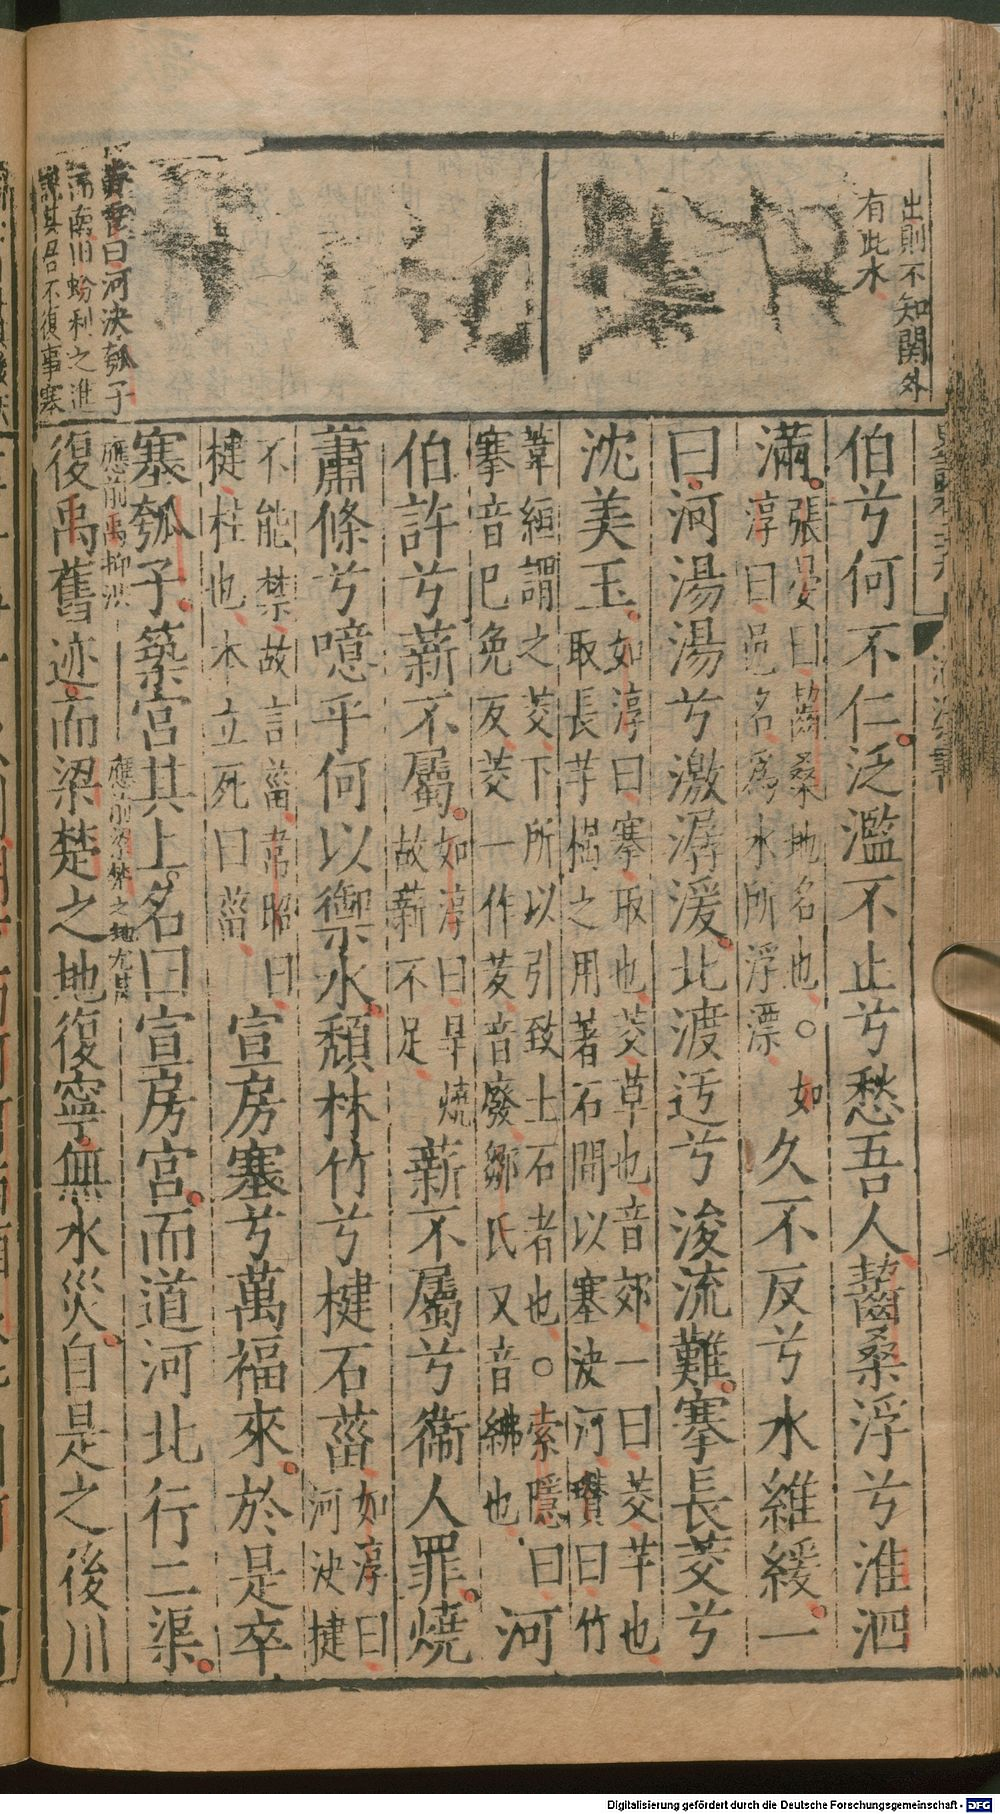 出則不知関外
有此水
曰河決瓠子
之進
其君不復事塞
伯兮何不仁泛濫不止兮愁吾人齧桑浮兮淮泗
滿張晏曰齧桑地名也○如
淳曰邑名為水所浮漂
久不反兮水維緩一
曰河湯湯兮激潺湲北渡迃兮浚流難搴長茭兮
沈美玉如淳曰搴取也茭草也音郊一曰茭芉也
取長芉樹之用著石間以塞決河瓚曰竹
葦絙謂之茭下所以引致土石者也○索隱曰
搴音己免反茭一作芨音廢鄒氏又音紼也
河
伯許兮薪不屬如淳曰旱燒
故薪不足
薪不屬兮衞人罪燒
蕭條兮噫乎何以禦水頹林竹兮楗石菑如淳曰
河決揵
不能禁故言菑韋昭曰
楗柱也木立死曰菑
宣房塞兮萬福來於是卒
塞瓠子築宮其上名曰宣房宮而道河北行二渠
應前禹抑洪
應前梁楚之地尤甚
復禹舊迹而梁楚之地復寧無水災自是之後川
Digitalisierung gefördert durch die Deutsche Forschungsgemeinschaft - DFG